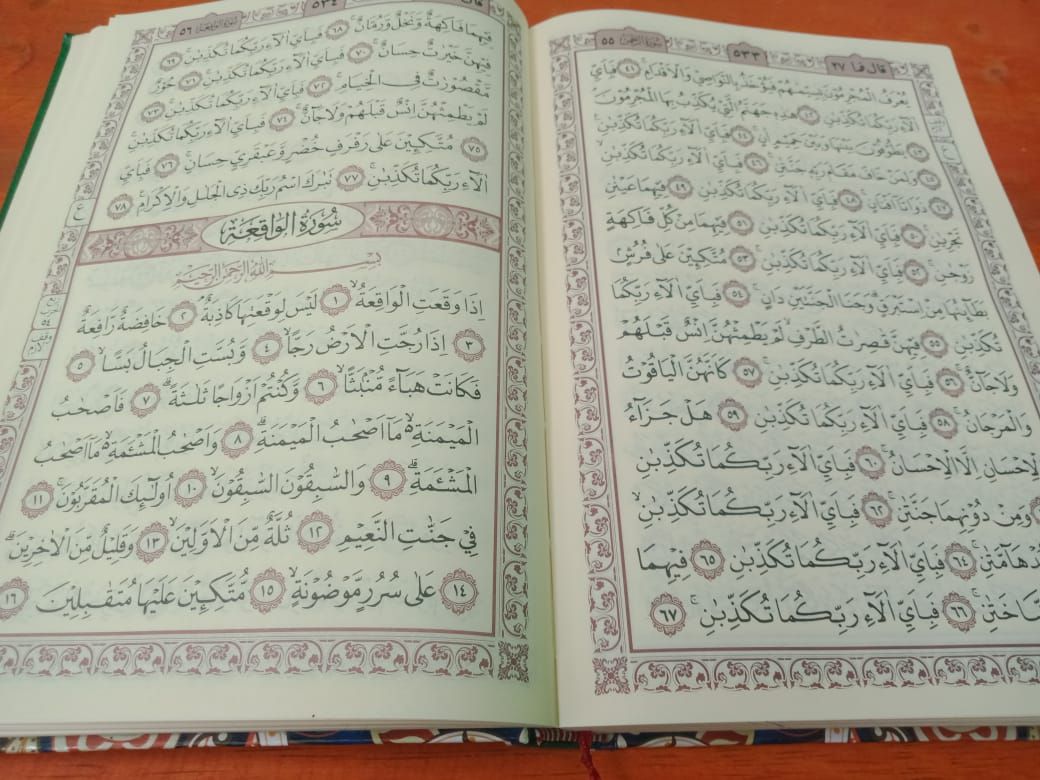 قال فما ٢٧
٥٣٣
سورة الرحمن ٥٥
يُعْرَفُ الْمُجْرِمُوْنَ بِسِيْمٰهُمْ فَيُؤْخَذُ بِالنَّوَاصِيْ وَالْاَقْدَامِۚ ٤١ فَبِاَيِّ
اٰلَاۤءِ رَبِّكُمَا تُكَذِّبٰنِ ٤٢ هٰذِهٖ جَهَنَّمُ الَّتِيْ يُكَذِّبُ بِهَا الْمُجْرِمُوْنَۘ
٤٣ يَطُوْفُوْنَ بَيْنَهَا وَبَيْنَ حَمِيْمٍ اٰنٍۚ ٤٤ فَبِاَيِّ اٰلَاۤءِ رَبِّكُمَا تُكَذِّبٰنِ
٤٥ وَلِمَنْ خَافَ مَقَامَ رَبِّهٖ جَنَّتٰنِۚ ٤٦ فَبِاَيِّ اٰلَاۤءِ رَبِّكُمَا تُكَذِّبٰنِۙ
٤٧ ذَوَاتَآ اَفْنَانٍۚ ٤٨ فَبِاَيِّ اٰلَاۤءِ رَبِّكُمَا تُكَذِّبٰنِ ٤٩ فِيْهِمَا عَيْنٰنِ
تَجْرِيٰنِۚ ٥٠ فَبِاَيِّ اٰلَاۤءِ رَبِّكُمَا تُكَذِّبٰنِ ٥١ فِيْهِمَا مِنْ كُلِّ فَاكِهَةٍ
زَوْجٰنِۚ ٥٢ فَبِاَيِّ اٰلَاۤءِ رَبِّكُمَا تُكَذِّبٰنِۚ ٥٣ مُتَّكِـِٕيْنَ عَلٰى فُرُشٍۢ
بَطَاۤىِٕنُهَا مِنْ اِسْتَبْرَقٍۗ وَجَنَا الْجَنَّتَيْنِ دَانٍۚ ٥٤ فَبِاَيِّ اٰلَاۤءِ رَبِّكُمَا
تُكَذِّبٰنِ ٥٥ فِيْهِنَّ قٰصِرٰتُ الطَّرْفِۙ لَمْ يَطْمِثْهُنَّ اِنْسٌ قَبْلَهُمْ
وَلَا جَاۤنٌّۚ ٥٦ فَبِاَيِّ اٰلَاۤءِ رَبِّكُمَا تُكَذِّبٰنِۚ ٥٧ كَاَنَّهُنَّ الْيَاقُوْتُ
وَالْمَرْجَانُۚ ٥٨ فَبِاَيِّ اٰلَاۤءِ رَبِّكُمَا تُكَذِّبٰنِ ٥٩ هَلْ جَزَاۤءُ
الْاِحْسَانِ اِلَّا الْاِحْسَانُۚ ٦٠ فَبِاَيِّ اٰلَاۤءِ رَبِّكُمَا تُكَذِّبٰنِ
وَمِنْ دُوْنِهِمَا جَنَّتٰنِۚ ٦٢ فَبِاَيِّ اٰلَاۤءِ رَبِّكُمَا تُكَذِّبٰنِۙ
دْهَاۤمَّتٰنِۚ ٦٤ فَبِاَيِّ اٰلَاۤءِ رَبِّكُمَا تُكَذِّبٰنِۚ ٦٥ فِيْهِمَا
ضَّاخَتٰنِۚ ٦٦ فَبِاَيِّ اٰلَاۤءِ رَبِّكُمَا تُكَذِّبٰنِۚ ٦٧
قال
٥٣٤
سورة الواقعة ٥٦
فِيْهِمَا فَاكِهَةٌ وَّنَخْلٌ وَّرُمَّانٌۚ ٦٨ فَبِاَيِّ اٰلَاۤءِ رَبِّكُمَا تُكَذِّبٰنِۚ ٦٩
فِيْهِنَّ خَيْرٰتٌ حِسَانٌۚ ٧٠ فَبِاَيِّ اٰلَاۤءِ رَبِّكُمَا تُكَذِّبٰنِۚ ٧١ حُوْرٌ
مَّقْصُوْرٰتٌ فِى الْخِيَامِۚ ٧٢ فَبِاَيِّ اٰلَاۤءِ رَبِّكُمَا تُكَذِّبٰنِۚ ٧٣
لَمْ يَطْمِثْهُنَّ اِنْسٌ قَبْلَهُمْ وَلَا جَاۤنٌّۚ ٧٤ فَبِاَيِّ اٰلَاۤءِ رَبِّكُمَا تُكَذِّبٰنِۚ
٧٥ مُتَّكِـِٕيْنَ عَلٰى رَفْرَفٍ خُضْرٍ وَّعَبْقَرِيٍّ حِسَانٍۚ ٧٦ فَبِاَيِّ
اٰلَاۤءِ رَبِّكُمَا تُكَذِّبٰنِۚ ٧٧ تَبٰرَكَ اسْمُ رَبِّكَ ذِى الْجَلٰلِ وَالْاِكْرَامِ ٧٨
سُوْرَةُ الْوَاقِعَةِ
بِسْمِ اللّٰهِ الرَّحْمٰنِ الرَّحِيْمِ
اِذَا وَقَعَتِ الْوَاقِعَةُۙ ١ لَيْسَ لِوَقْعَتِهَا كَاذِبَةٌۘ ٢ خَافِضَةٌ رَّافِعَةٌ
٣ اِذَا رُجَّتِ الْاَرْضُ رَجًّاۙ ٤ وَّبُسَّتِ الْجِبَالُ بَسًّاۙ ٥
فَكَانَتْ هَبَاۤءً مُّنْۢبَثًّاۙ ٦ وَّكُنْتُمْ اَزْوَاجًا ثَلٰثَةًۗ ٧ فَاَصْحٰبُ
الْمَيْمَنَةِۙ مَآ اَصْحٰبُ الْمَيْمَنَةِۗ ٨ وَاَصْحٰبُ الْمَشْـَٔمَةِۙ مَآ اَصْحٰبُ
الْمَشْـَٔمَةِۗ ٩ وَالسّٰبِقُوْنَ السّٰبِقُوْنَۙ ١٠ اُولٰۤىِٕكَ الْمُقَرَّبُوْنَۚ ١١
فِيْ جَنّٰتِ النَّعِيْمِ ١٢ ثُلَّةٌ مِّنَ الْاَوَّلِيْنَۙ ١٣ وَقَلِيْلٌ مِّنَ الْاٰخِرِيْنَۗ
١٤ عَلٰى سُرُرٍ مَّوْضُوْنَةٍۙ ١٥ مُّتَّكِـِٕيْنَ عَلَيْهَا مُتَقٰبِلِيْنَ ١٦